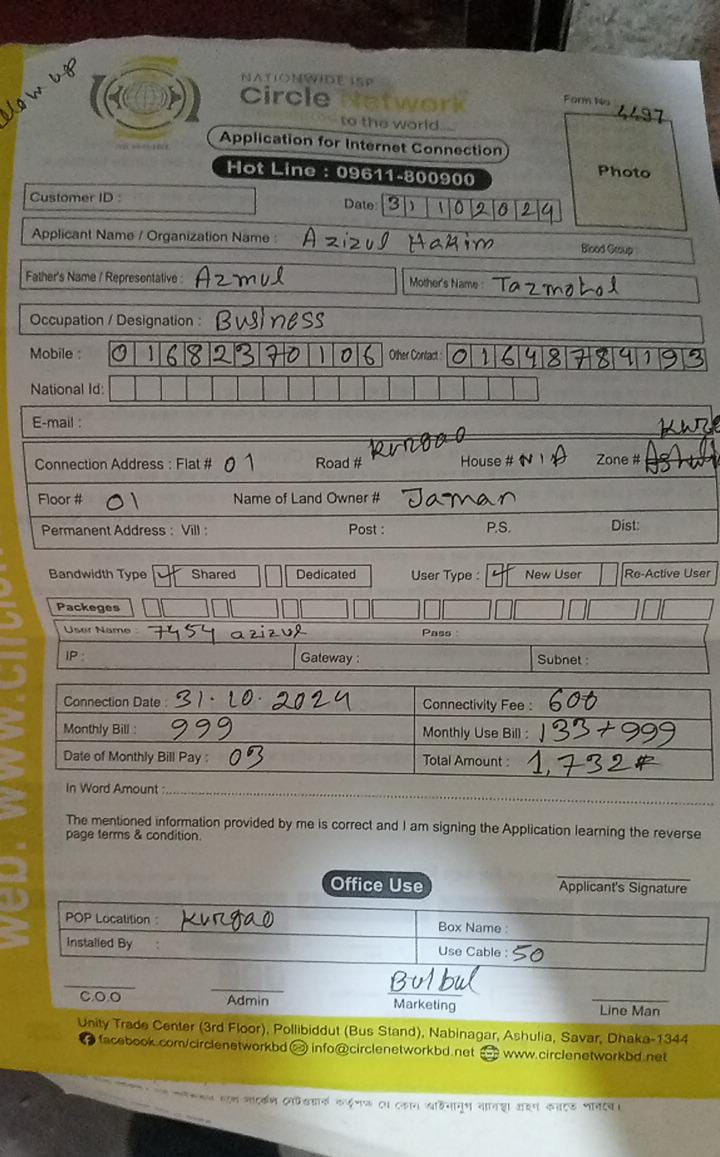 NATIONWIDE ISP
Circle Network
to the world...
Form No 4497
Application for Internet Connection
Hot Line : 09611-800900
Photo
Customer ID :
Date: 31102024
Applicant Name / Organization Name : Azizul Hakim Blood Group :
Father's Name / Representative : Azmul Mother's Name : Tazmohol
Occupation / Designation : Business
Mobile : 01682370106 Other Contact : 01648784193
National Id:
E-mail :
Connection Address : Flat # 01 Road # Kurgao House # N/A Zone #
Floor # 01 Name of Land Owner # Jaman
Permanent Address : Vill : Post : P.S. Dist:
Bandwidth Type Shared Dedicated User Type : New User Re-Active User
Packeges
User Name : 7454 azizul Pass :
IP : Gateway : Subnet :
Connection Date : 31.10.2024 Connectivity Fee : 600
Monthly Bill : 999 Monthly Use Bill : 133+999
Date of Monthly Bill Pay : 03 Total Amount : 1,732
In Word Amount :
The mentioned information provided by me is correct and I am signing the Application learning the reverse
page terms & condition.
Office Use
Applicant's Signature
POP Locatition : Kurgao Box Name :
Installed By : Use Cable : 50
Bulbul
C.O.O Admin Marketing Line Man
Unity Trade Center (3rd Floor), Pollibiddut (Bus Stand), Nabinagar, Ashulia, Savar, Dhaka-1344
facebook.com/circlenetworkbd info@circlenetworkbd.net www.circlenetworkbd.net